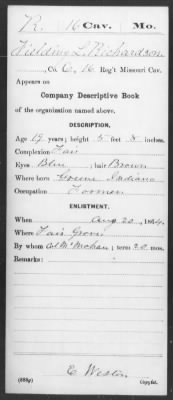 R. 16 Cav. Mo.
Wielding L. Richardson
, Co. C, 16 Reg't Missouri Cav.
Appears on
Company Descriptive Book
of the organization named above.
DESCRIPTION.
Age 19 years; height 5 feet 8 inches.
Complexion Fair
Eyes Blue; hair Brown
Where born Greene Indiana
Occupation Farmer
ENLISTMENT.
When Aug 20, 1864.
Where Fair Grove
By whom Col McMahan; term 20 mos.
Remarks:
E. Weston
(383g) Copyist.